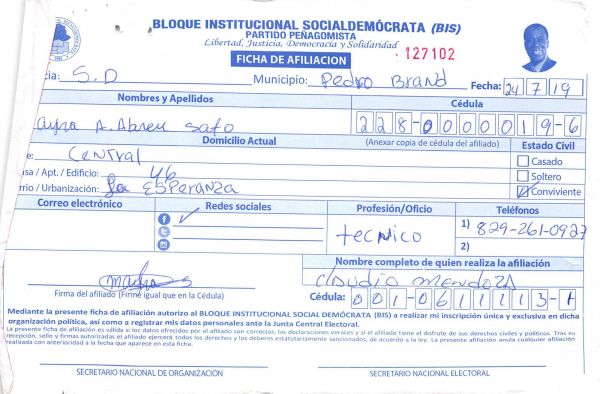 BLOQUE INSTITUCIONAL SOCIALDEMÓCRATA (BIS)
PARTIDO PEÑAGOMISTA
Libertad, Justicia, Democracia y Solidaridad
127102
FICHA DE AFILIACION
cia: S.D Municipio: Pedro Brand Fecha: 24 7 19
Nombres y Apellidos Cédula
ayra A. Abreu Soto 228-0000019-6
Domicilio Actual (Anexar copia de cédula del afiliado) Estado Civil
e: Central Casado
sa / Apt. / Edificio: 46 Soltero
rrio / Urbanización: La Esperanza Conviviente
Correo electrónico Redes sociales Profesión/Oficio Teléfonos
tecnico 1) 829-261-0927
2)
Nombre completo de quien realiza la afiliación
Claudio Mendoza
Firma del afiliado (Firme igual que en la Cédula) Cédula: 001-0611113-1
Mediante la presente ficha de afiliación autorizo al BLOQUE INSTITUCIONAL SOCIAL DEMÓCRATA (BIS) a realizar mi inscripción única y exclusiva en dicha
organización política, así como a registrar mis datos personales ante la Junta Central Electoral.
La presente ficha de afiliación es válida si los datos ofrecidos por el afiliado son correctos, las declaraciones veraces y si el afiliado tiene el disfrute de sus derechos civiles y políticos. Tras su
recepción, sello y firmas autorizadas el afiliado ejercerá todos los derechos y los deberes estatutariamente sancionados, de acuerdo a la ley. La presente afiliación anula cualquier afiliación
realizada con anterioridad a la fecha que aparece en esta ficha.
SECRETARIO NACIONAL DE ORGANIZACIÓN SECRETARIO NACIONAL ELECTORAL